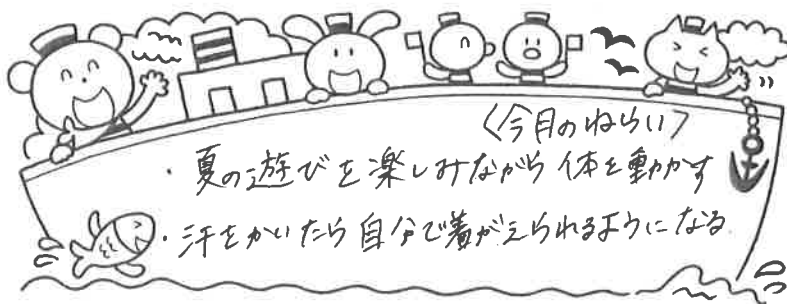 〈今月のねらい〉
・夏の遊びを楽しみながら体を動かす
・汗をかいたら自分で着がえられるようになる